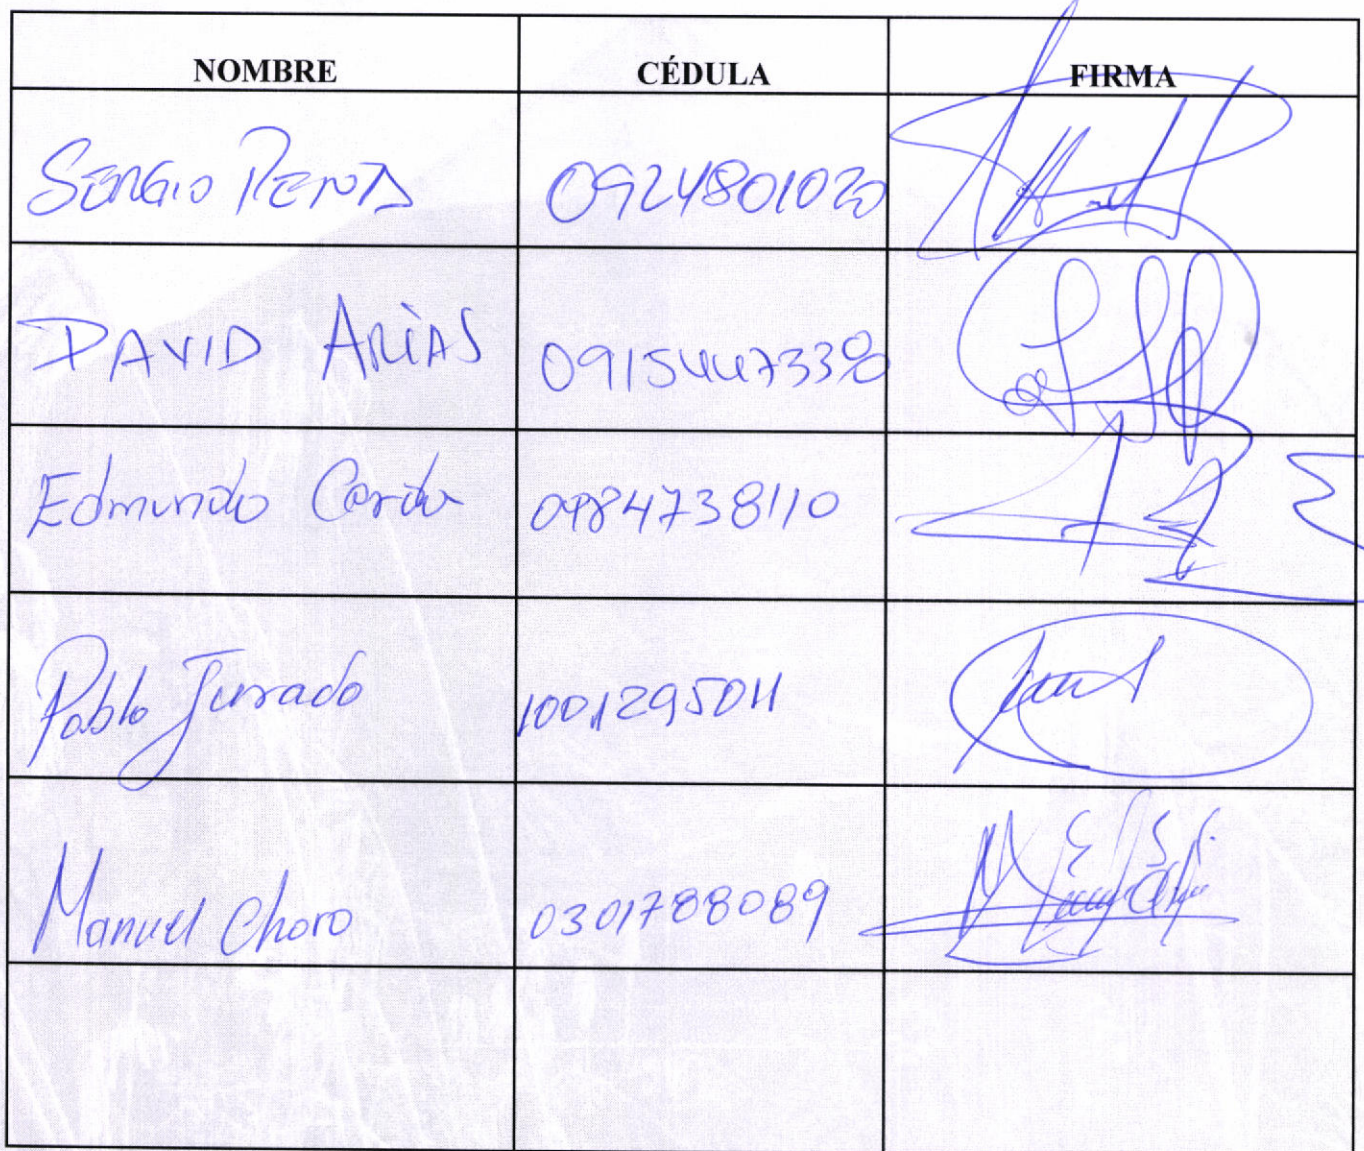 NOMBRE CÉDULA FIRMA
SERGIO PEÑA 0924801020
DAVID ARIAS 0915447330
Edmundo 0984738110
Pablo Jurado 1001295011
Manuel Choro 0301788089